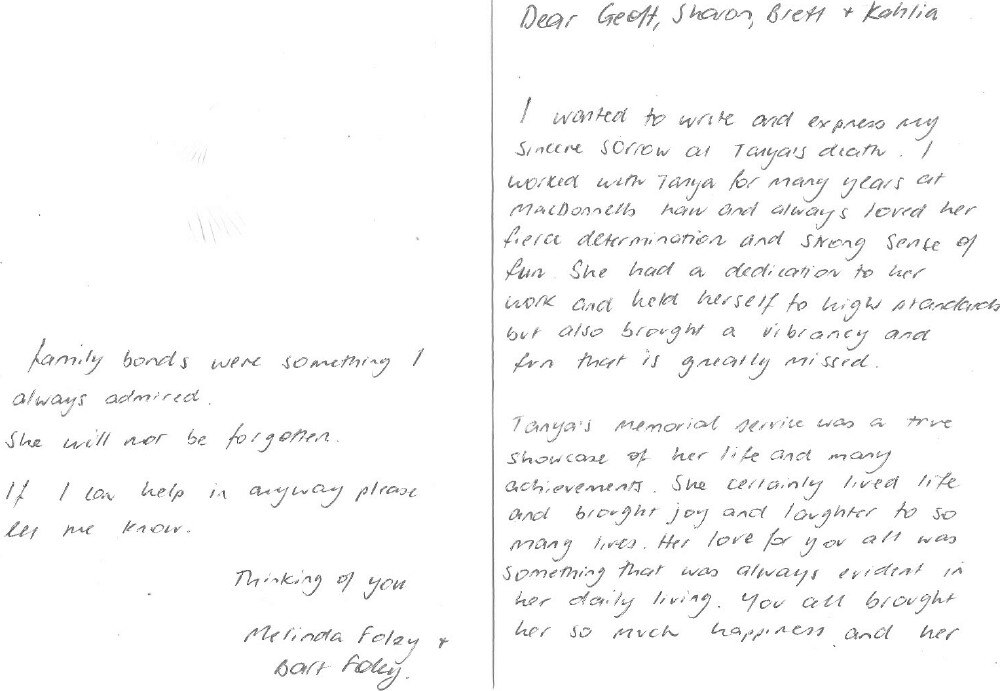 Dear Geoff, Sharon, Brett + Kahlia
I wanted to write and express my
sincere sorrow at Tanya's death. I
worked with Tanya for many years at
MacDonnells law and always loved her
fierce determination and strong sense of
fun. She had a dedication to her
work and held herself to high standards
but also brought a vibrancy and
fun that is greatly missed.
Tanya's memorial service was a true
showcase of her life and many
achievements. She certainly lived life
and brought joy and laughter to so
many lives. Her love for you all was
something that was always evident in
her daily living. You all brought
her so much happiness and her
family bonds were something I
always admired.
She will not be forgotten.
If I can help in anyway please
let me know.
Thinking of you
Melinda Foley +
Bart Foley.